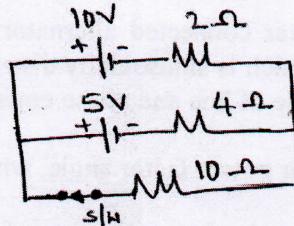 10V 2Ω
+ -
5V 4Ω
+ -
10Ω
S/W